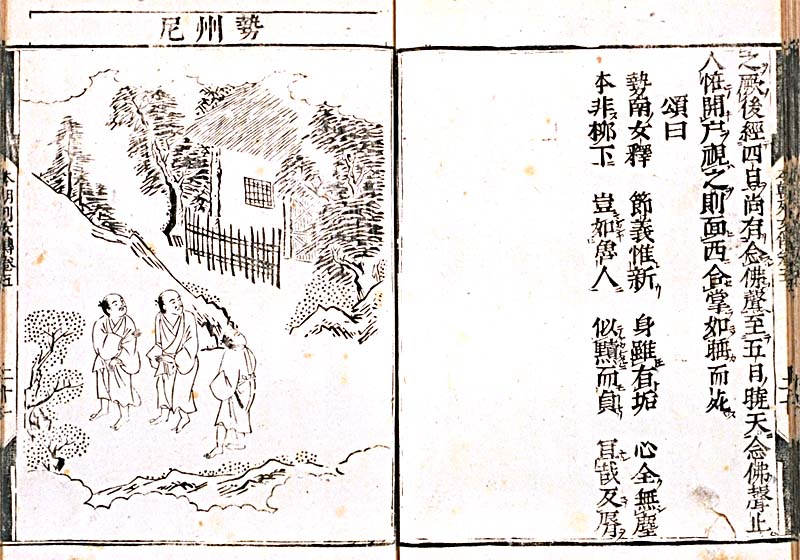 之厥後經四日尚有念佛聲至五日曉天念佛聲止
人恠開戸視之則面西合掌如而死
頌曰
勢南女釋　節義惟新　身雖有垢　心全無塵
本非柳下　豈如魯人　似黷而貞　哉
勢州尼
本朝列女傳卷五
二十一